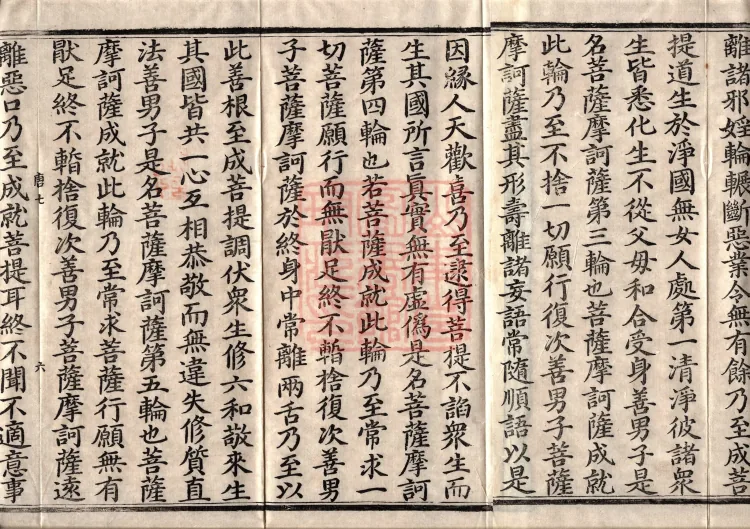 離諸邪婬輪轢斷惡業令無有餘乃至成菩
提道生於淨國無女人處第一清淨彼諸衆
生皆悉化生不從父母和合受身善男子是
名菩薩摩訶薩第三輪也菩薩摩訶薩成就
此輪乃至不捨一切願行復次善男子菩薩
摩訶薩盡其形壽離諸妄語常隨順語以是
因緣人天歡喜乃至逮得菩提不諂衆生而
生其國所言眞實無有虛僞是名菩薩摩訶
薩第四輪也若菩薩成就此輪乃至常求一
切菩薩願行而無猒足終不暫捨復次善男
子菩薩摩訶薩於終身中常離兩舌乃至以
此善根至成菩提調伏衆生修六和敬來生
其國皆共一心互相恭敬而無違失修質直
法善男子是名菩薩摩訶薩第五輪也菩薩
摩訶薩成就此輪乃至常求菩薩行願無有
猒足終不暫捨復次善男子菩薩摩訶薩遠
唐七 六
離惡口乃至成就菩提耳終不聞不適意事